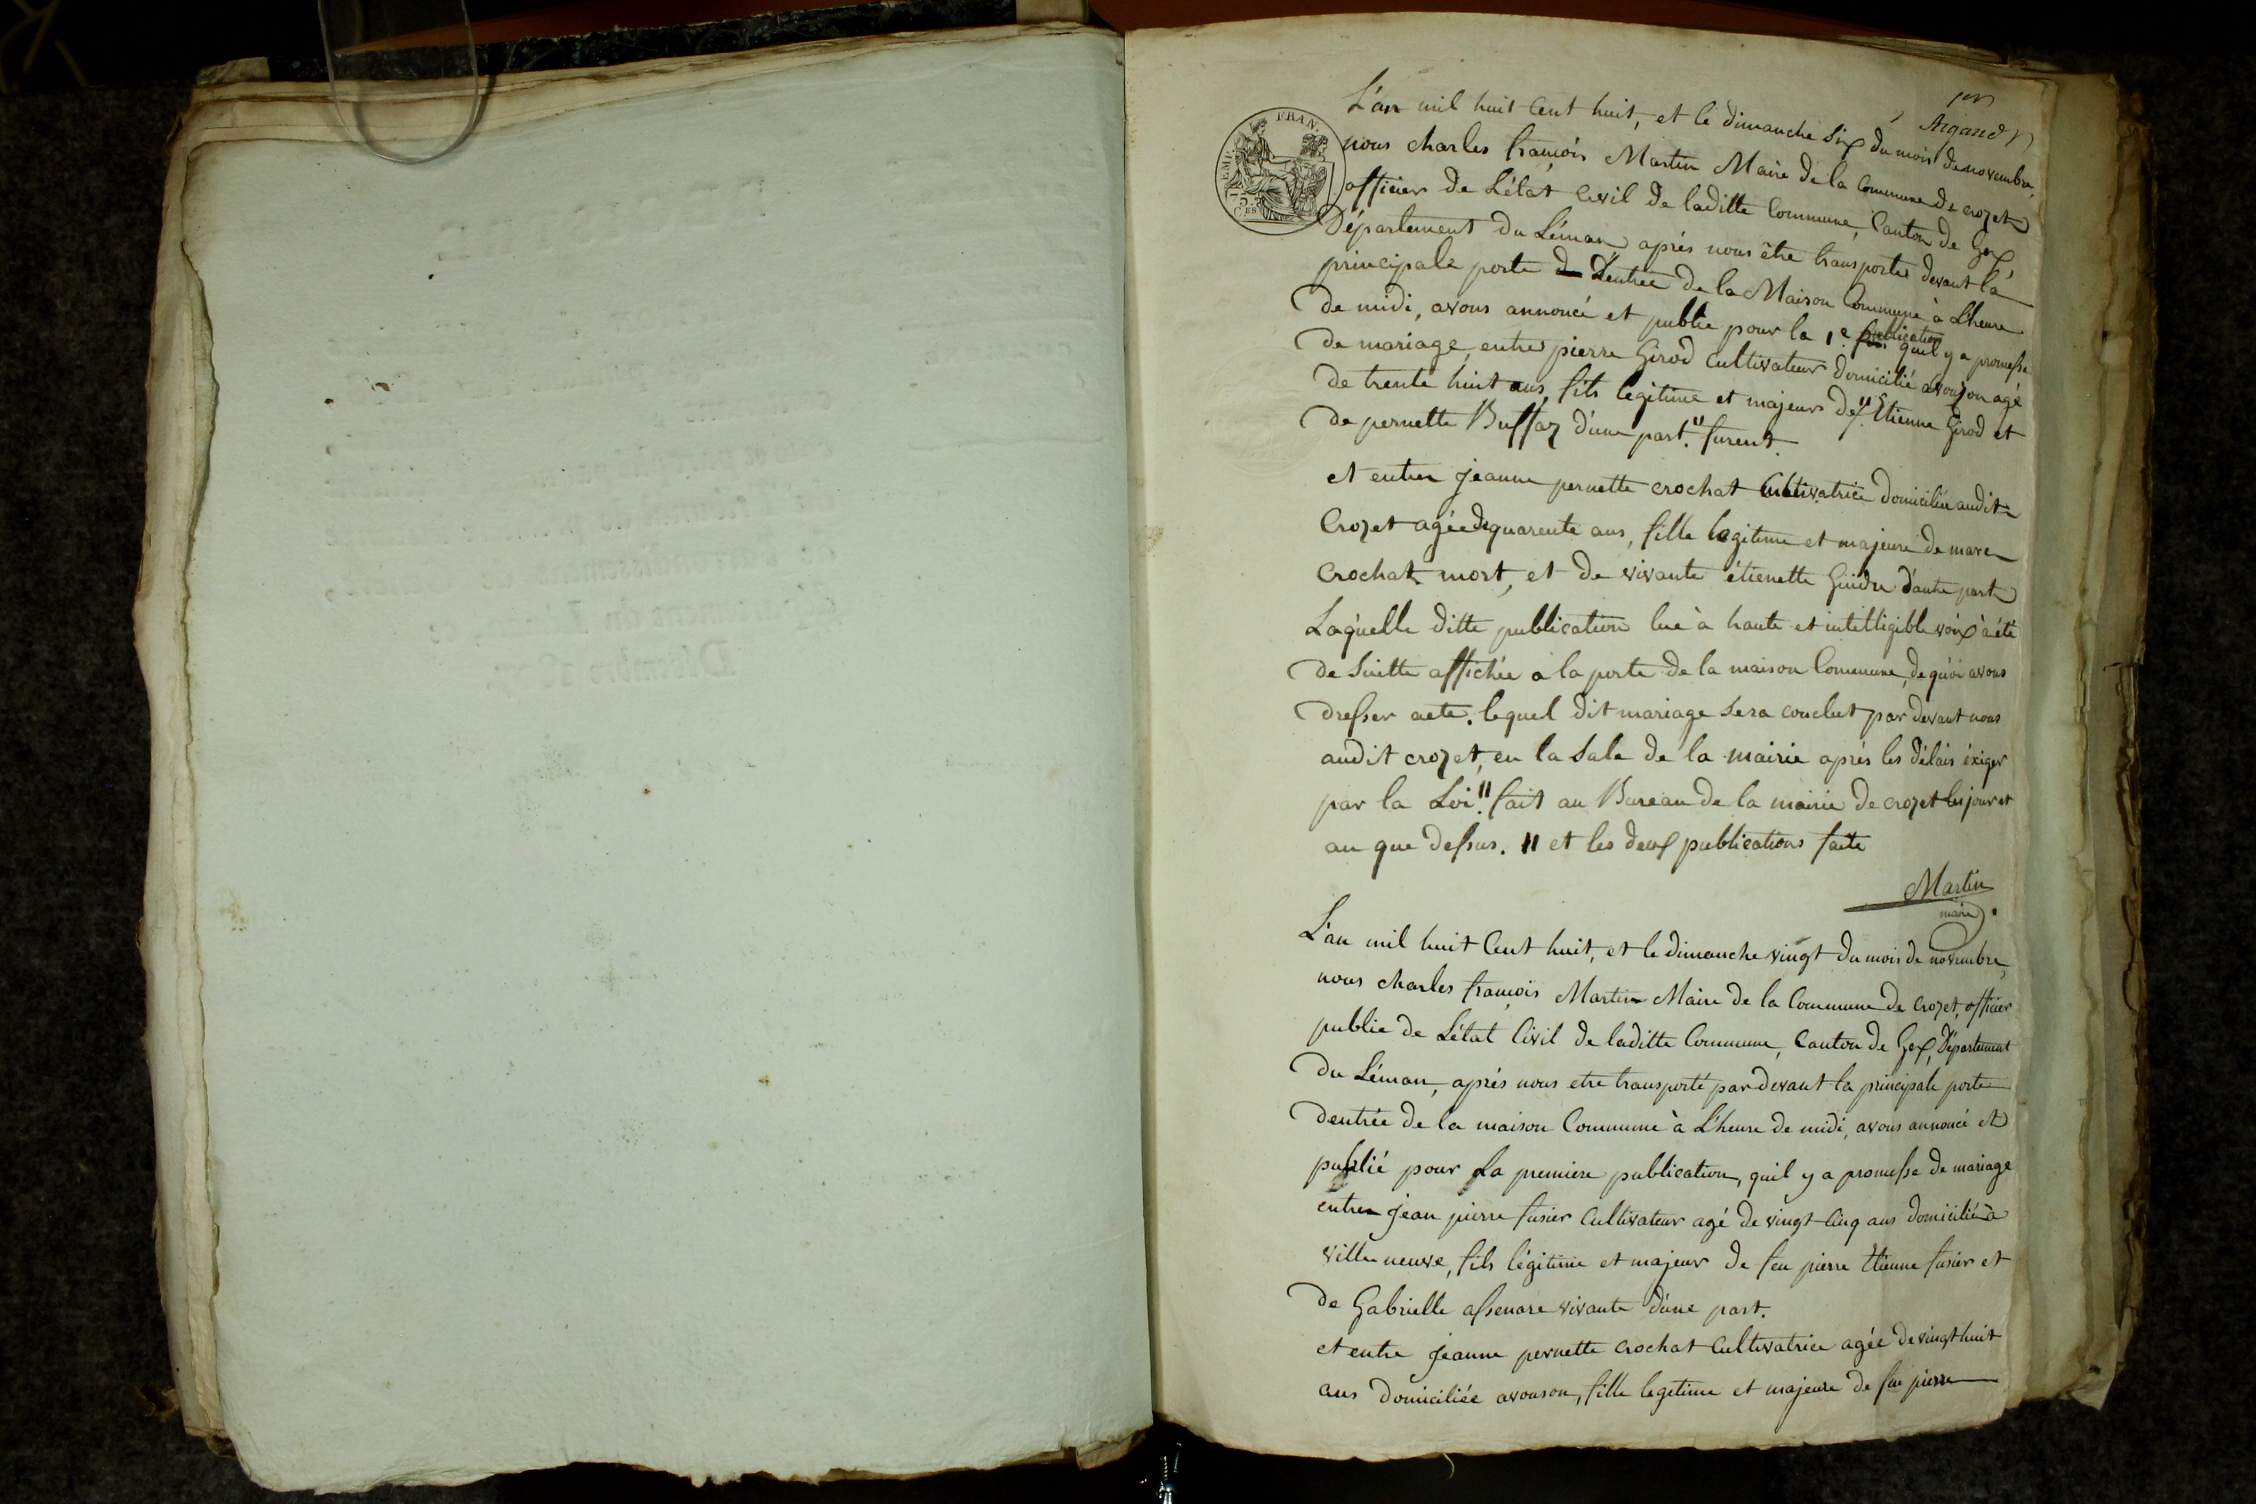 1er
Argand
FRAN.
L'an mil huit Cent huit, et le dimanche Six du mois de novembre,
nous charles françois Martin Maire de la Commune de crozet
officier de L'état Civil de laditte Commune, Canton de Gex,
Département du Léman, après nous être transportés devant la
principale porte d'entrée de la Maison Commune à L'heure
de midi, avons annoncé et publié pour la 1e. publication quil y a promesse
de mariage, entre pierre Girod Cultivateur domicilié avouzon agé
de trente huit ans, fils legitime et majeur de f. Etienne Girod et
de pernette Buffaz d'une part. " furent.
et entre jeanne pernette crochat Cultivatrice domiciliée audit
Crozet agée de quarente ans, fille legitime et majeure de marc
crochat mort, et de vivante étienette Guidre d'autre part
Laquelle ditte publication lue à haute et intelligible voix à été
de Suitte affichée a la porte de la maison Commune, de quoi avons
dresser acte. lequel dit mariage Sera conclut par devant nous
audit crozet, en la Sale de la mairie après les délais éxiger
par la Loi. " fait au Bureau de la mairie de crozet les jour et
an que dessus. " et les deux publications faite
Martin
maire
L'an mil huit Cent huit, et le dimanche vingt du mois de novembre,
nous charles françois Martin Maire de la Commune de crozet, officier
public de L'état Civil de laditte Commune, Canton de Gex, Département
du Léman, après nous etre transporté par devant la principale porte
dentrée de la maison Commune à L'heure de midi, avons annoncé et
publié pour La premiere publication, quil y a promesse de mariage
entre jean pierre fusier Cultivateur agé de vingt Cinq ans domicilié a
ville neuve, fils légitime et majeur de feu pierre Etienne fusier et
de Gabrielle assenare vivante d'une part.
et entre jeanne pernette crochat Cultivatrice agée de vingt huit
ans domiciliée avouson, fille legitime et majeure de feu pierre